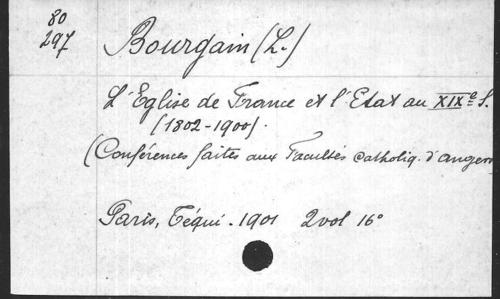 80
297
Bourgain (L.)
L'Eglise de France et l'Etat au XIXe S.
(1802-1900).
(Conférences faites aux Facultés catholiq. d'angers
Paris, Téqui. 1901 2 vol 16°